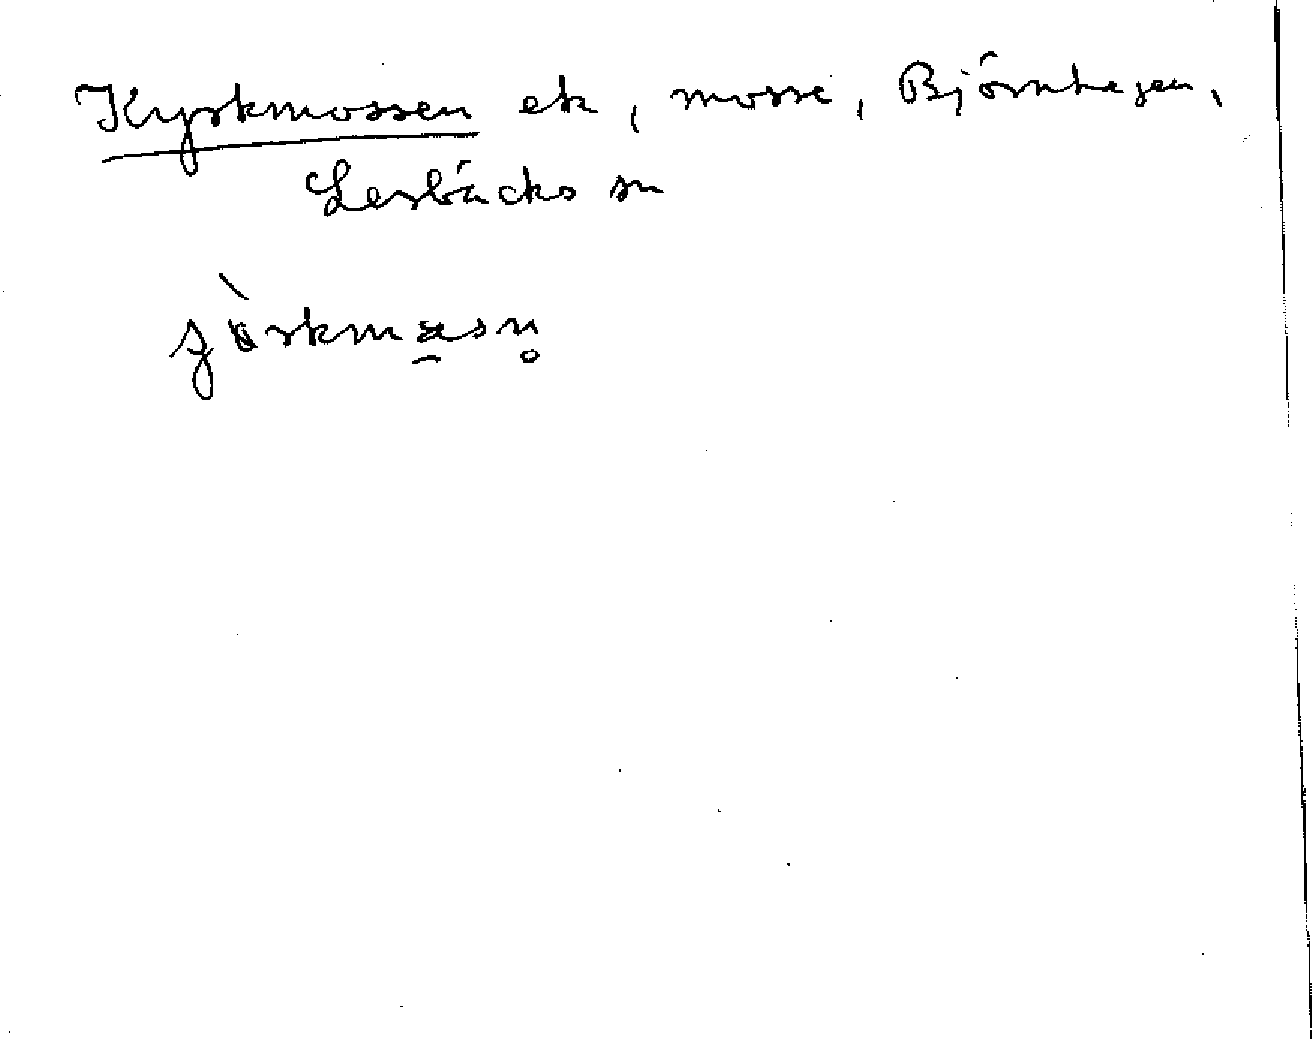 Kyrkmossen ek, mosse, Björnhagen,
Lerbäcks sn